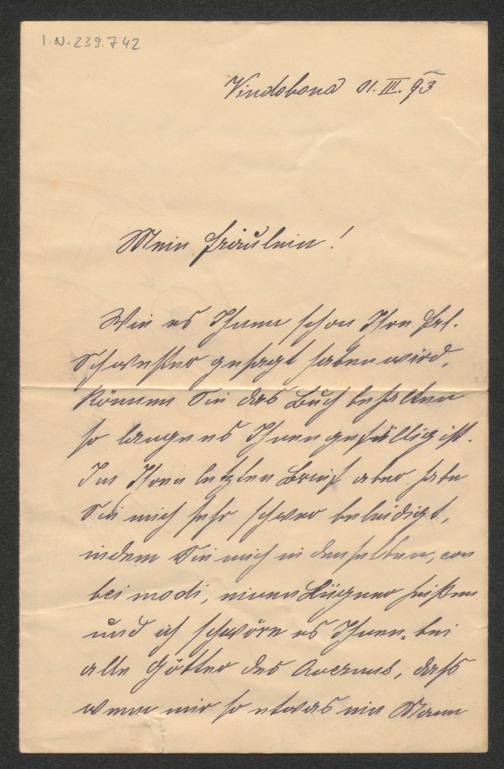 I.N. 239.742
Vindobona 01. III. 93
Mein Fräulein!
Wie es Ihnen schon Ihre Frl.
Schwester gesagt haben wird,
können Sie das Buch behalten
so lange es Ihnen gefällig ist.
In Ihren letzten Brief aber habe
Sie mich sehr schwer beleidigt,
indem Sie mich in denselben, con
bei modi, einen Lügner heißen
und ich schwöre es Ihnen, bei
alle Götter des Avernus, daß
wenn mir so etwas ein Mann